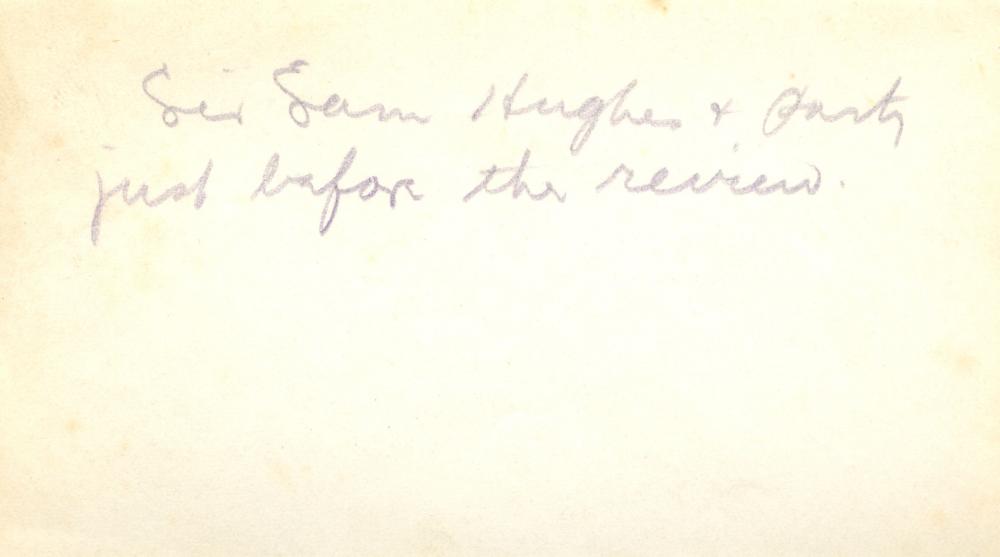 Sir Sam Hughes & Party
just before the review.